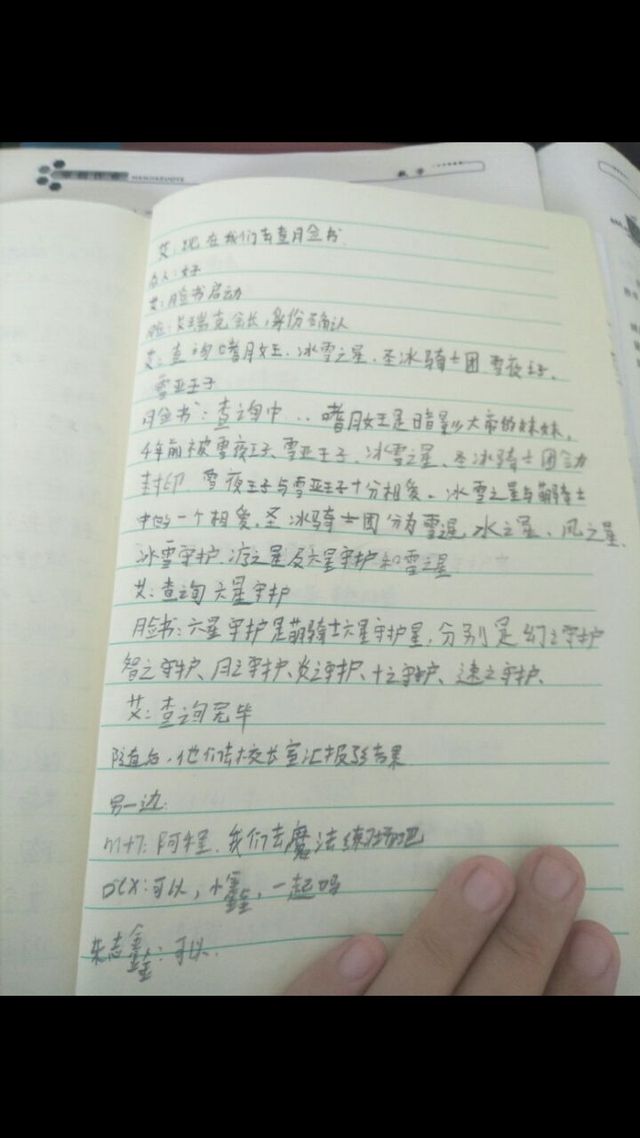 寒假作业 HANJIAZUOYE
数学
艾:现在我们去查月金书
众人:好
艾:月金书启动
月金:艾瑞克会长,身份确认
艾:查询嗜月女王、冰雪之星、圣冰骑士团、雪夜王子、
雪亚王子
月金书:查询中...嗜月女王是暗黑大帝的妹妹,
千年前被雪夜王子、雪亚王子、冰雪之星、圣冰骑士团合力
封印 雪夜王子与雪亚王子十分相爱。冰雪之星与萌骑士
中的一个相爱,圣冰骑士团分为雪混,水之星、风之星、
冰雪守护、冰之星及六星守护和雪之星
艾:查询六星守护
月金书:六星守护是萌骑士六星守护星,分别是幻之守护
智之守护、月之守护、炎之守护、十之守护、速之守护、
艾:查询完毕
随后,他们去校长室汇报结果
另一边:
m+7:阿程,我们去魔法练习场吧
DCX:可以,小鑫,一起吗
朱志鑫:可以.